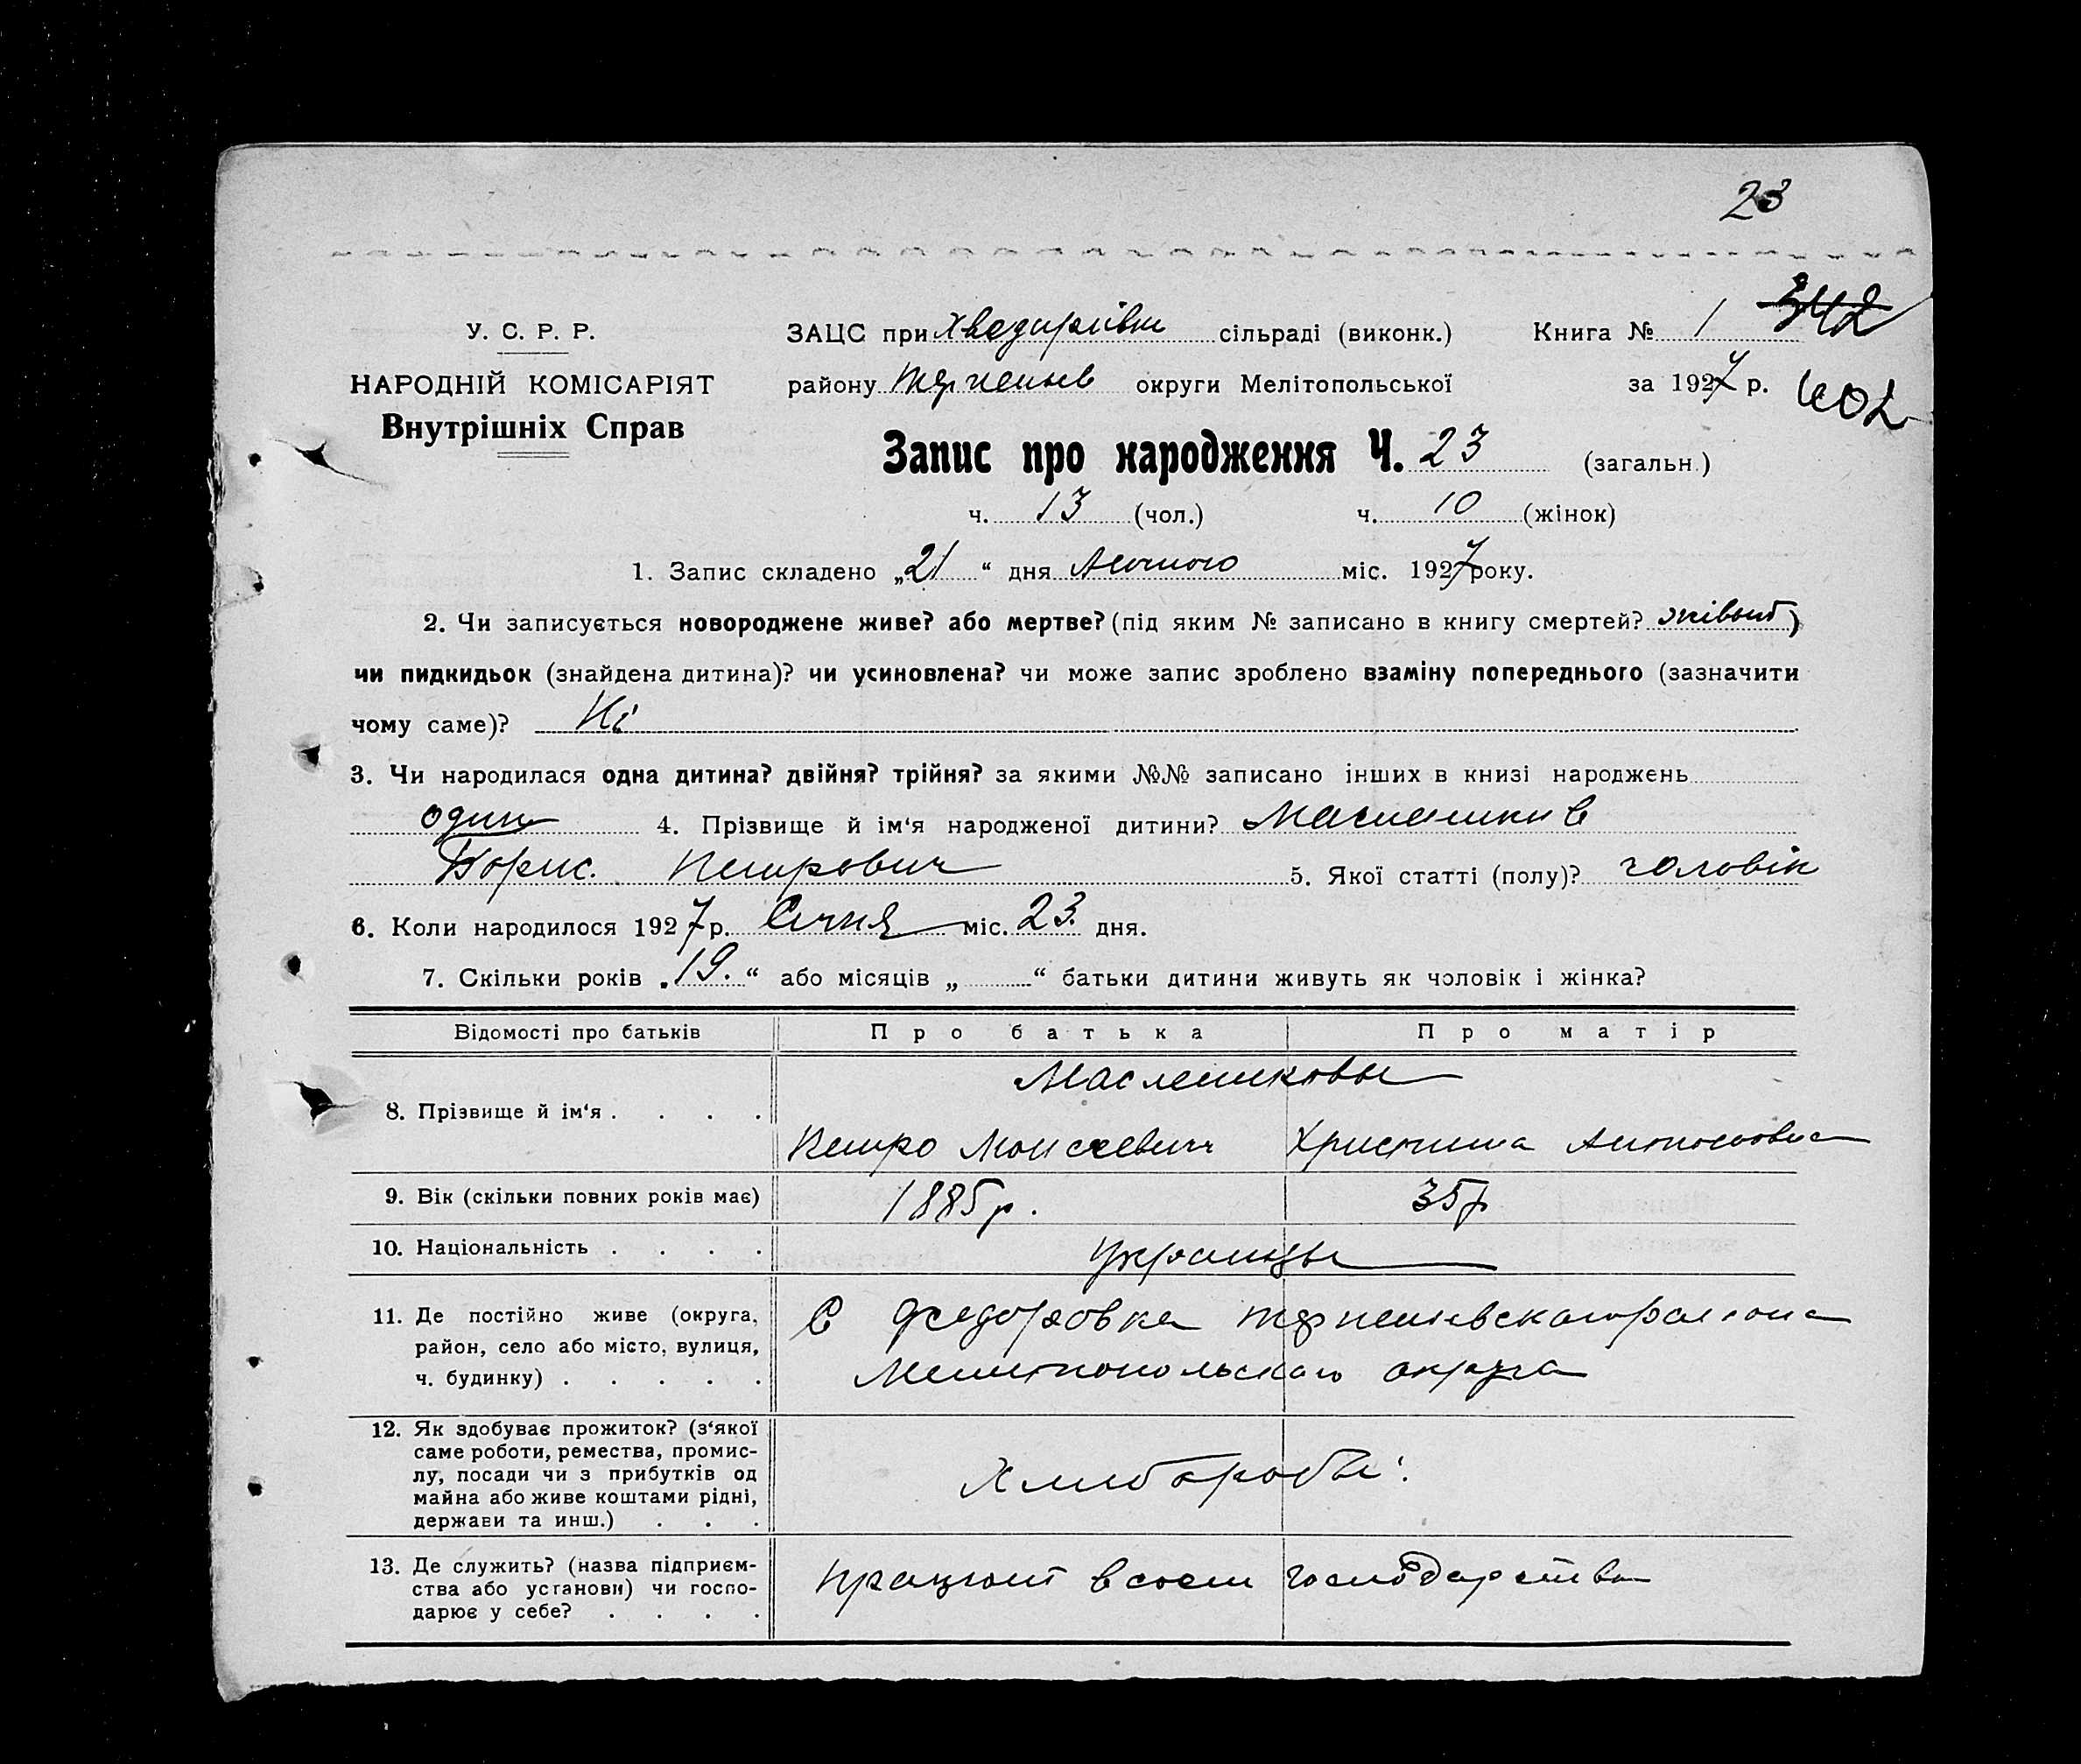 23
У. С. Р. Р.
НАРОДНІЙ КОМІСАРІЯТ
Внутрішніх Справ
ЗАЦС при Хведорівки сільраді (виконк.) Книга № 1 342
району Терпеньев округи Мелітопольської за 1927 р. 402
Запис про народження Ч. 23 (загальн.)
ч. 13 (чол.) ч. 10 (жінок)
1. Запис складено „21“ дня Лютого міс. 1927 року.
2. Чи записується новороджене живе? або мертве? (під яким № записано в книгу смертей? живый)
чи пидкидьок (знайдена дитина)? чи усиновлена? чи може запис зроблено взаміну попереднього (зазначити
чому саме)? Ні
3. Чи народилася одна дитина? двійня? трійня? за якими №№ записано інших в книзі народжень
один 4. Прізвище й ім‘я народженої дитини? Маслеников
Борис. Петрович 5. Якої статті (полу)? чоловік
6. Коли народилося 1927 р. Січня міс. 23 дня.
7. Скільки років „19.“ або місяців „ “ батьки дитини живуть як чоловік і жінка?
Відомості про батьків Про батька Про матір
8. Прізвище й ім‘я . . . . Маслениковы
Петро Моисеевич Христина Антоновна
9. Вік (скільки повних років має) 1885р. 35р
10. Національність . . . . Украинцы
11. Де постійно живе (округа, район, село або місто, вулиця, ч. будинку) . . . . .
С Федоровка Терпеньевскаго раиона
Мелитопольскаго округа
12. Як здобуває прожиток? (з‘якої саме роботи, ремества, промислу, посади чи з прибутків од майна або живе коштами рідні, держави та инш.) . . .
Хлибороби.
13. Де служить? (назва підприємства або установи) чи господарює у себе? . . . .
працюют в своем господарстви